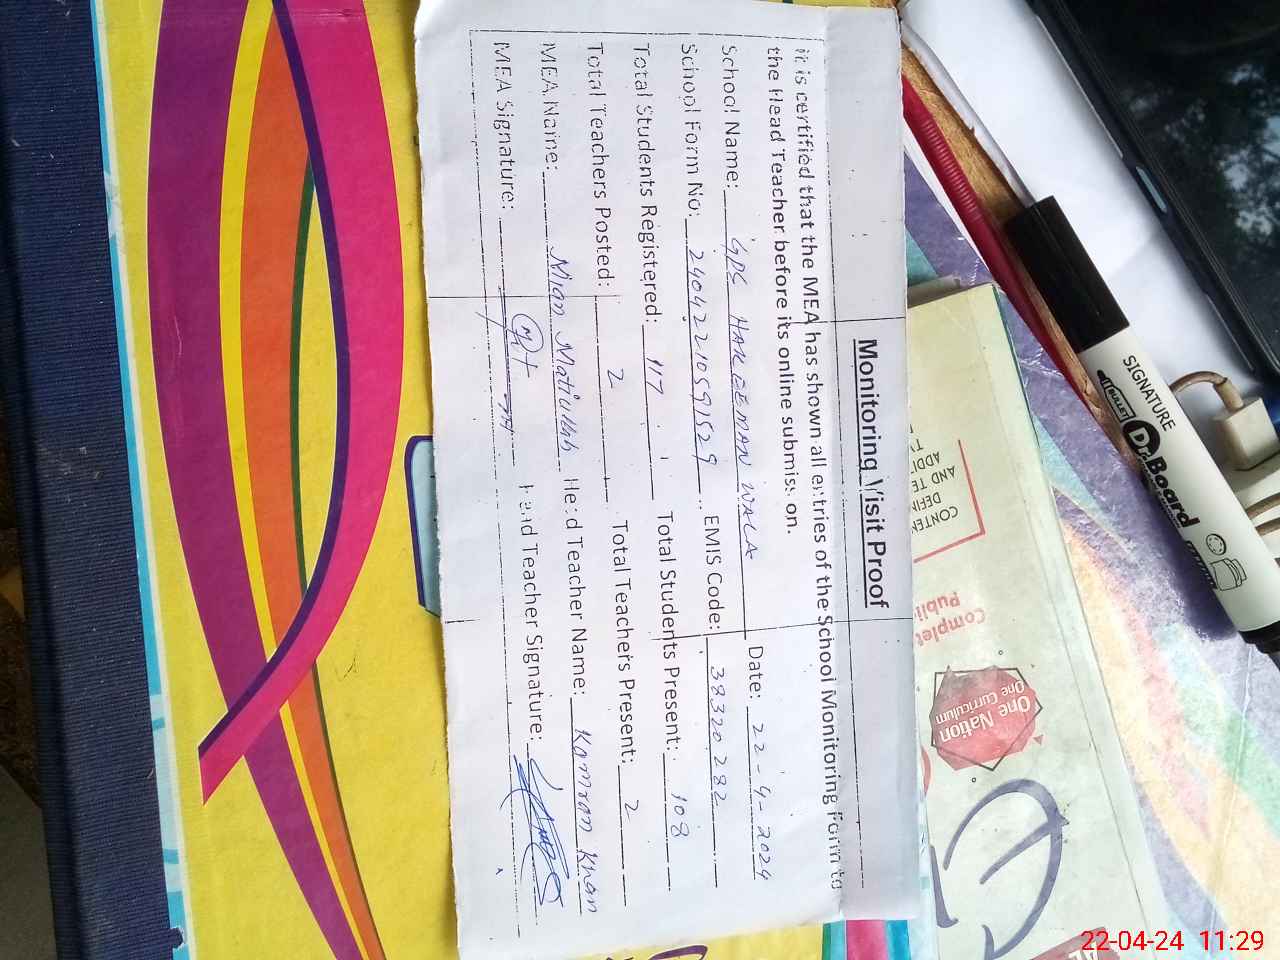 Monitoring Visit Proof
it is certified that the MEA has shown all entries of the School Monitoring Form to
the Head Teacher before its online submission.
School Name: GPS HAKEEMAN WALA Date: 22-4-2024
School Form No: 24042210591529 EMIS Code: 38320282
Total Students Registered: 117 Total Students Present: 108
Total Teachers Posted: 2 Total Teachers Present: 2
MEA Name: Mian Matiullah Head Teacher Name: Kamran Khan
MEA Signature: Head Teacher Signature:
SIGNATURE
BULLET
Dr. Board
CONTEN
DEFIN
AND TE
ADDIT
Complet
Publi
One Nation
One Curriculum
22-04-24 11:29